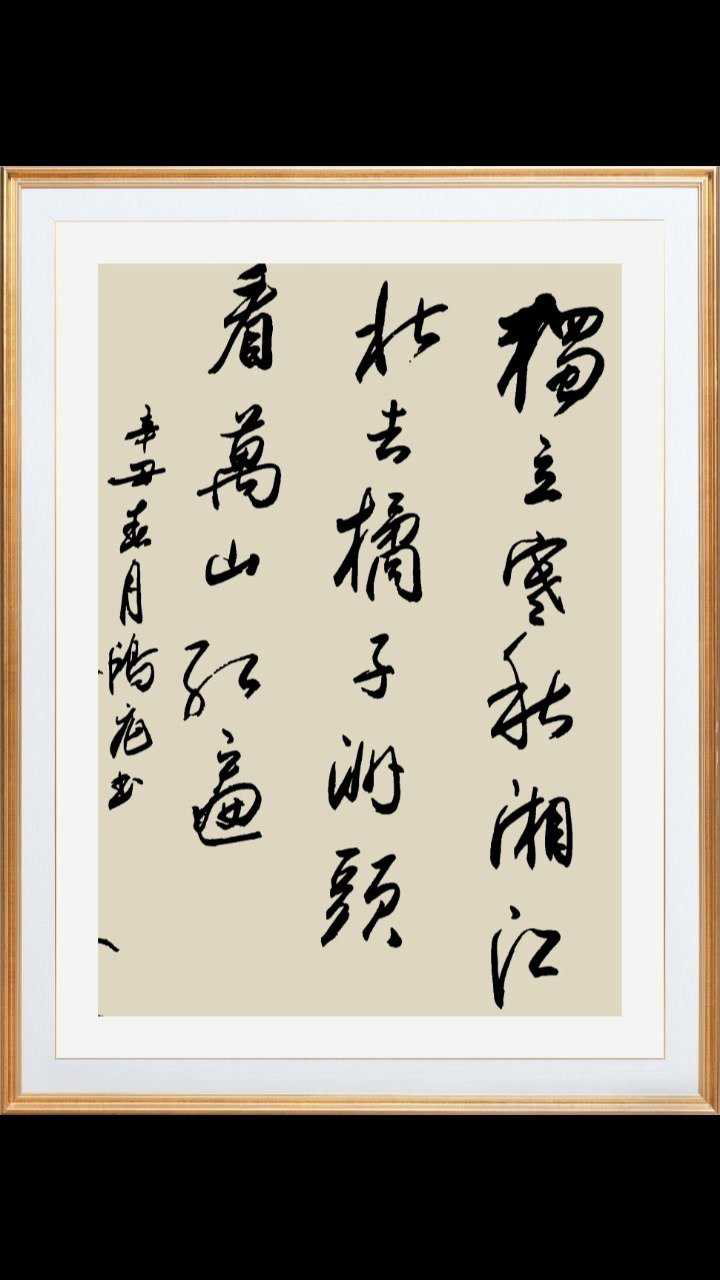 獨立寒秋湘江
北去橘子洲頭
看萬山紅遍
辛丑春月鴻（？）書